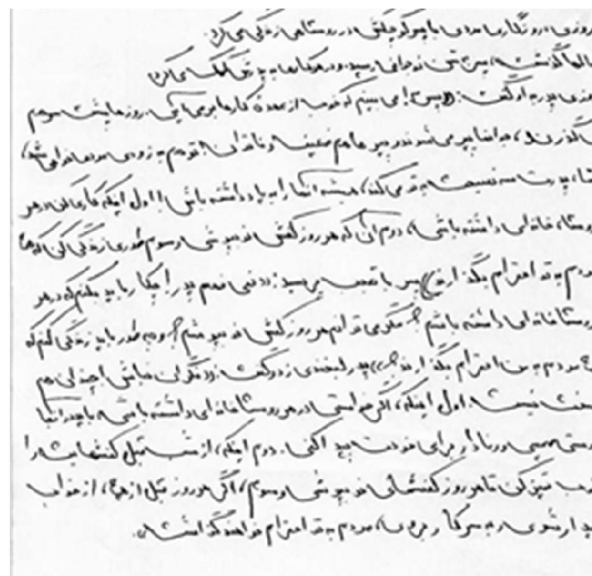 روزی، روزگاری مردی با پسر کوچکش در روستایی زندگی می‌کرد.
سالها گذشت، پسر به سن نوجوانی رسید و در کارها به پدرش کمک می‌کرد
روزی پدر به او گفت: «پسرم! می‌بینم که خوب از عهده کارها برمی‌آیی. روزها پشت سر هم
می‌گذرند، جوانها پیر می‌شوند و پیرها هم ضعیف و ناتوان. تو هم به زودی مردی خواهی شد،
پدرت سه نصیحت به تو می‌کند، همیشه آنها را به یاد داشته باش: اول اینکه کاری کن در هر
روستا، خانه‌ای داشته باشی، دوم آن که هر روز کفش نو بپوشی و سوم طوری زندگی کن که همه
مردم به تو احترام بگذارند.» پسر با تعجب پرسید: «ولی نمی‌فهمم پدر! چکار باید بکنم که در هر
روستا خانه‌ای داشته باشم؟ مگر می‌توانم هر روز کفش نو بپوشم؟ و چطور باید زندگی کنم که
همه مردم به من احترام بگذارند؟» پدر لبخندی زد و گفت: «زندگی این‌ها خیلی هم
سخت نیست. اول اینکه، اگر خواستی در هر روستا خانه‌ای داشته باشی، باید در آنجا
دوستی صمیمی و وفادار برای خودت پیدا کنی. دوم اینکه، از شب قبل کفشهایت را
خوب تمیز کن تا هر روز کفشهای نو بپوشی و سوم، اگر هر روز قبل از همه، از خواب
بیدار شوی و به سر کار بروی، مردم به تو احترام خواهند گذاشت.»